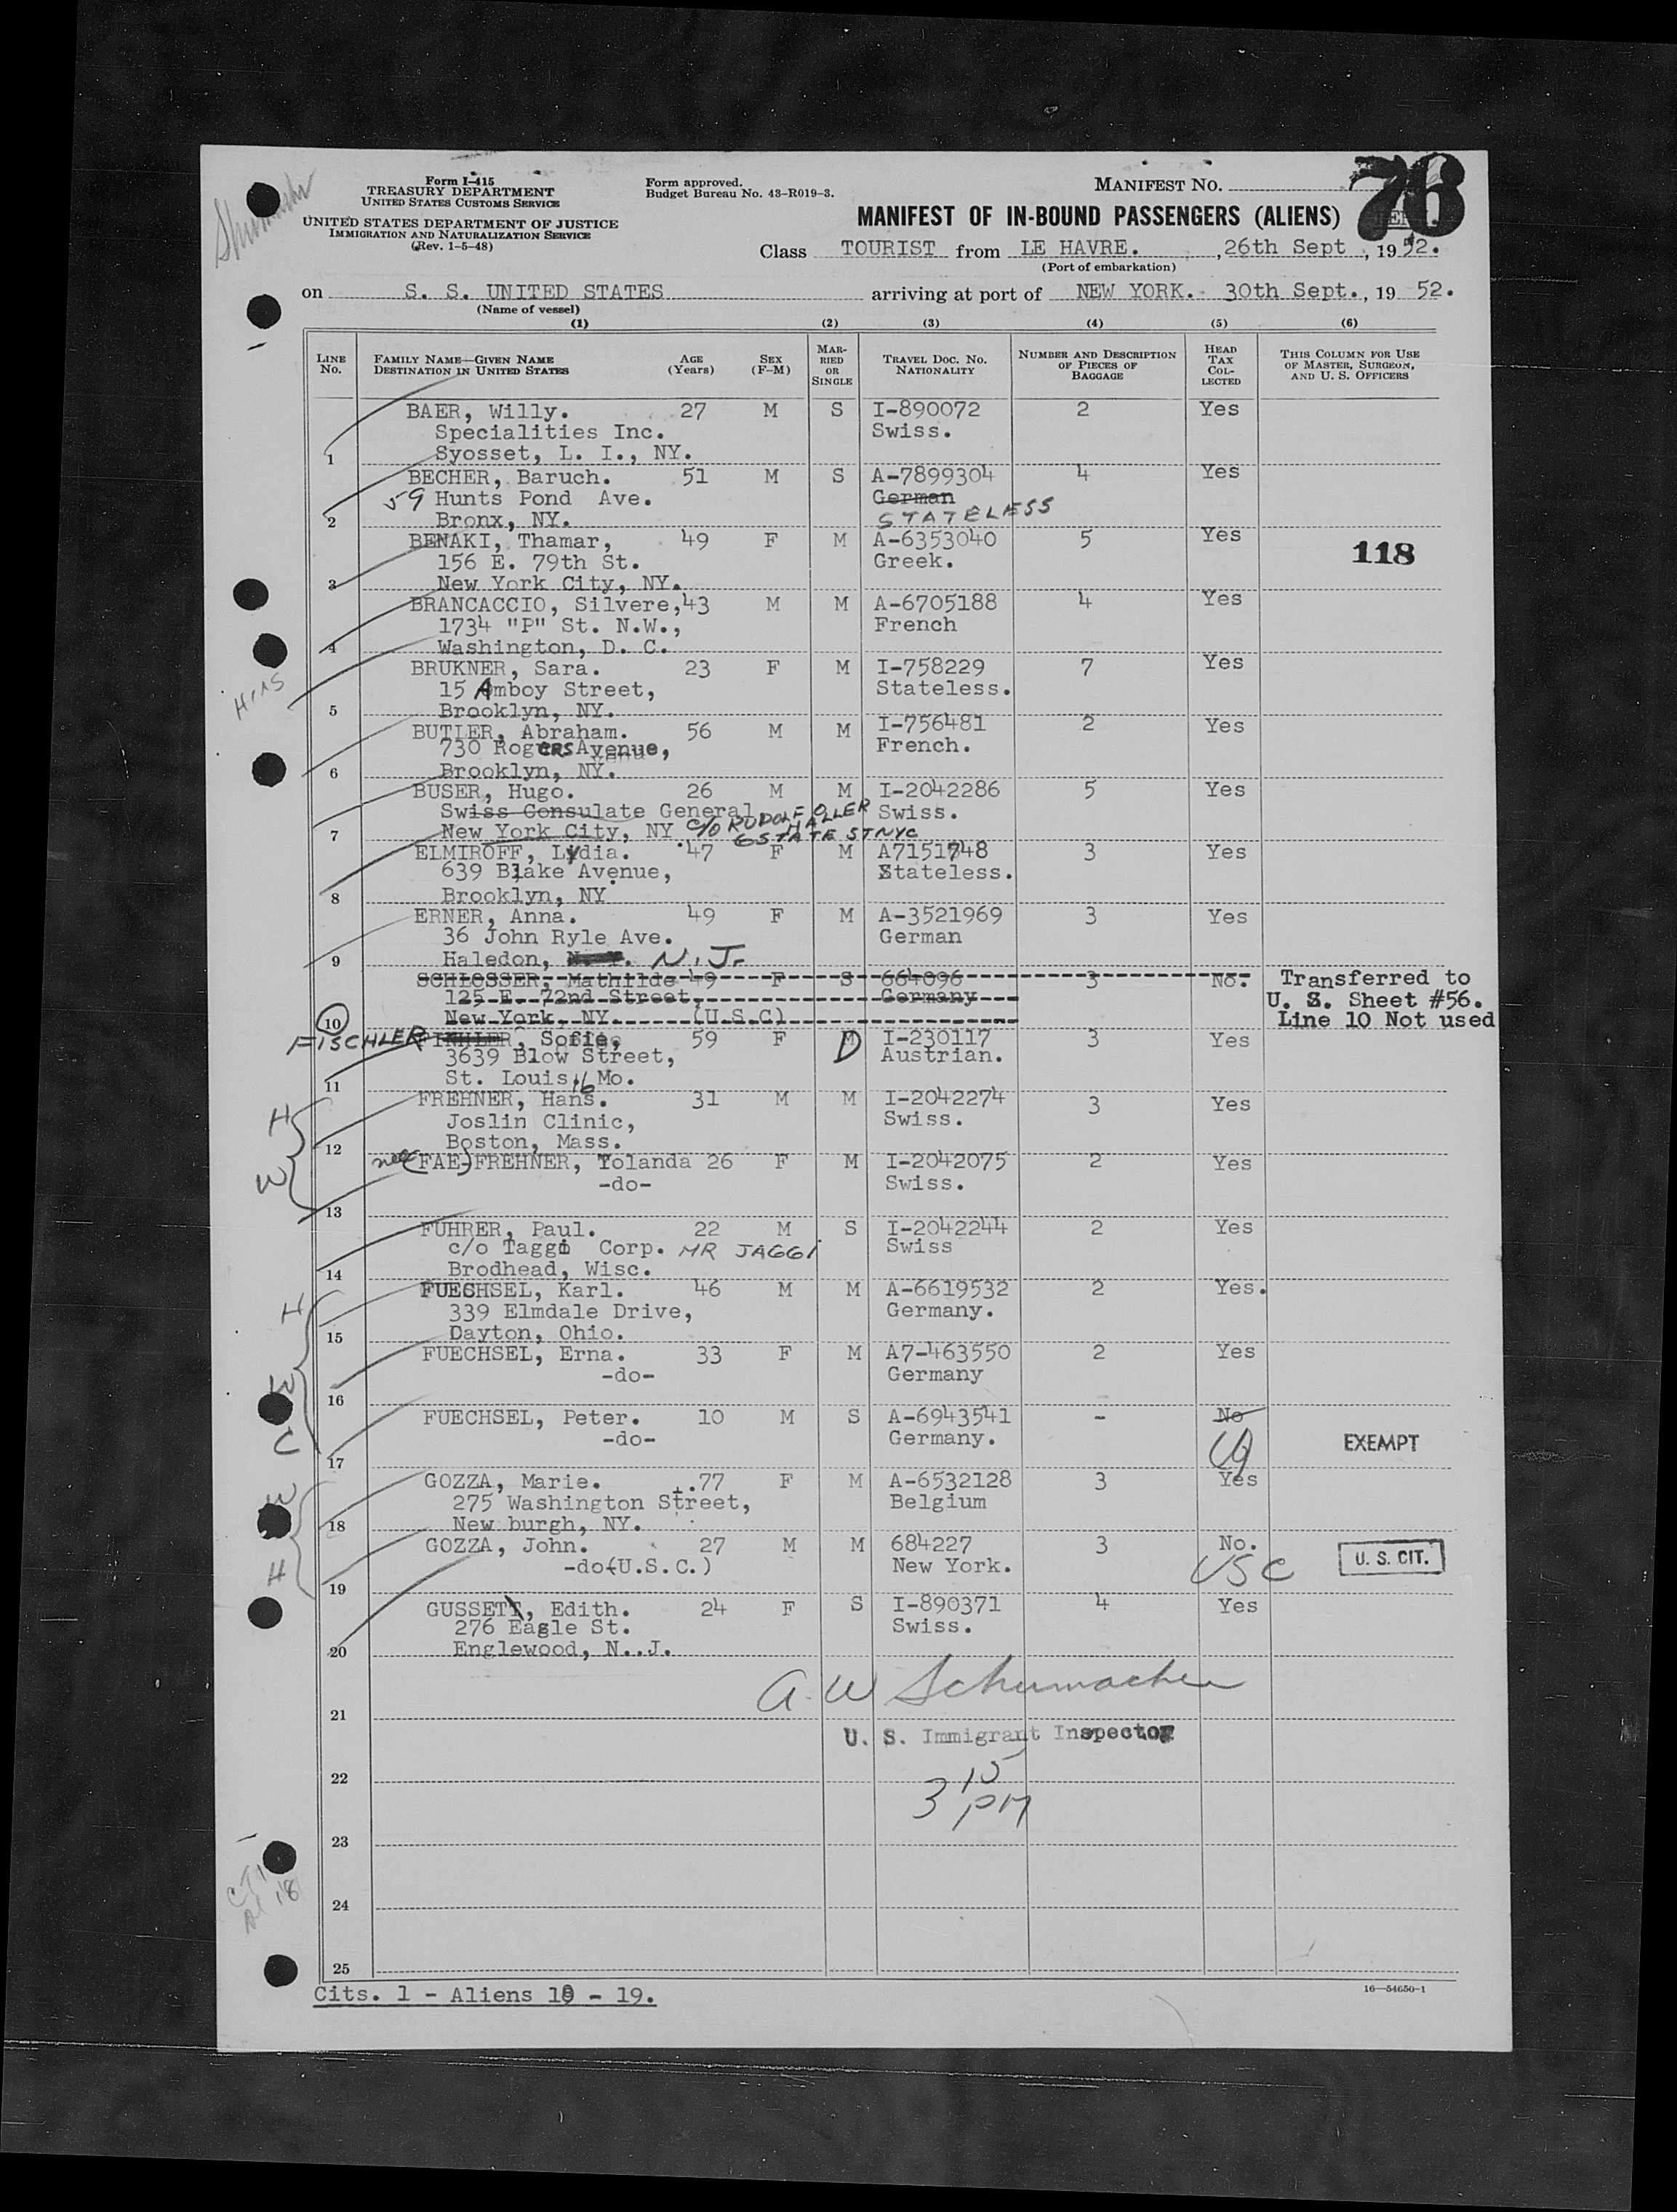 Form I-415
TREASURY DEPARTMENT
UNITED STATES CUSTOMS SERVICE
UNITED STATES DEPARTMENT OF JUSTICE
IMMIGRATION AND NATURALIZATION SERVICE
(Rev. 1-5-48)
Form approved.
Budget Bureau No. 43-R019-3.
MANIFEST NO. 76
MANIFEST OF IN-BOUND PASSENGERS (ALIENS)
Class TOURIST from LE HAVRE. , 26th Sept , 1952.
(Port of embarkation)
on S. S. UNITED STATES arriving at port of NEW YORK. 30th Sept., 19 52.
(Name of vessel)
(1) (2) (3) (4) (5) (6)
LINE No. FAMILY NAME—GIVEN NAME DESTINATION IN UNITED STATES AGE (Years) SEX (F-M) MARRIED OR SINGLE TRAVEL DOC. NO. NATIONALITY NUMBER AND DESCRIPTION OF PIECES OF BAGGAGE HEAD TAX COLLECTED THIS COLUMN FOR USE OF MASTER, SURGEON, AND U. S. OFFICERS
BAER, Willy. 27 M S I-890072 2 Yes
Specialities Inc. Swiss.
1 Syosset, L. I., NY.
BECHER, Baruch. 51 M S A-7899304 4 Yes
59 Hunts Pond Ave. German
2 Bronx, NY. STATELESS
BENAKI, Thamar, 49 F M A-6353040 5 Yes 118
156 E. 79th St. Greek.
3 New York City, NY.
BRANCACCIO, Silvere, 43 M M A-6705188 4 Yes
1734 "P" St. N.W., French
4 Washington, D. C.
BRUKNER, Sara. 23 F M I-758229 7 Yes
HIAS 15 Amboy Street, Stateless.
5 Brooklyn, NY.
BUTLER, Abraham. 56 M M I-756481 2 Yes
730 Rogers Avenue, French.
6 Brooklyn, NY.
BUSER, Hugo. 26 M M I-2042286 5 Yes
Swiss Consulate General Swiss.
7 New York City, NY c/o RUDOLF HALLER
6 STATE ST NYC
ELMIROFF, Lydia. 47 F M A7151748 3 Yes
639 Blake Avenue, Stateless.
8 Brooklyn, NY.
ERNER, Anna. 49 F M A-3521969 3 Yes
36 John Ryle Ave. German
9 Haledon, N.J.
SCHLOSSER, Mathilde 49 F S 664096 3 No. Transferred to
125 E. 72nd Street, Germany U. S. Sheet #56.
10 New York, NY. (U.S.C) Line 10 Not used
FISCHLER, Sofie, 59 F D I-230117 3 Yes
3639 Blow Street, Austrian.
11 St. Louis, 16 Mo.
H FREHNER, Hans. 31 M M I-2042274 3 Yes
Joslin Clinic, Swiss.
12 Boston, Mass.
W nee (FAE) FREHNER, Yolanda 26 F M I-2042075 2 Yes
-do- Swiss.
13
FUHRER, Paul. 22 M S I-2042244 2 Yes
c/o Taggi Corp. MR JAGGI Swiss
14 Brodhead, Wisc.
H FUECHSEL, Karl. 46 M M A-6619532 2 Yes.
339 Elmdale Drive, Germany.
15 Dayton, Ohio.
W FUECHSEL, Erna. 33 F M A7-463550 2 Yes
-do- Germany
16
C FUECHSEL, Peter. 10 M S A-6943541 - No
-do- Germany. EXEMPT
17
W GOZZA, Marie. 77 F M A-6532128 3 Yes
275 Washington Street, Belgium
18 New burgh, NY.
H GOZZA, John. 27 M M 684227 3 No.
-do-(U.S.C.) New York. USC U. S. CIT.
19
GUSSET, Edith. 24 F S I-890371 4 Yes
276 Eagle St. Swiss.
20 Englewood, N.J.
A W Schumacher
21
U. S. Immigrant Inspector
22
3 15 PM
23
24
25
Cits. 1 - Aliens 18 - 19.
16—54650-1